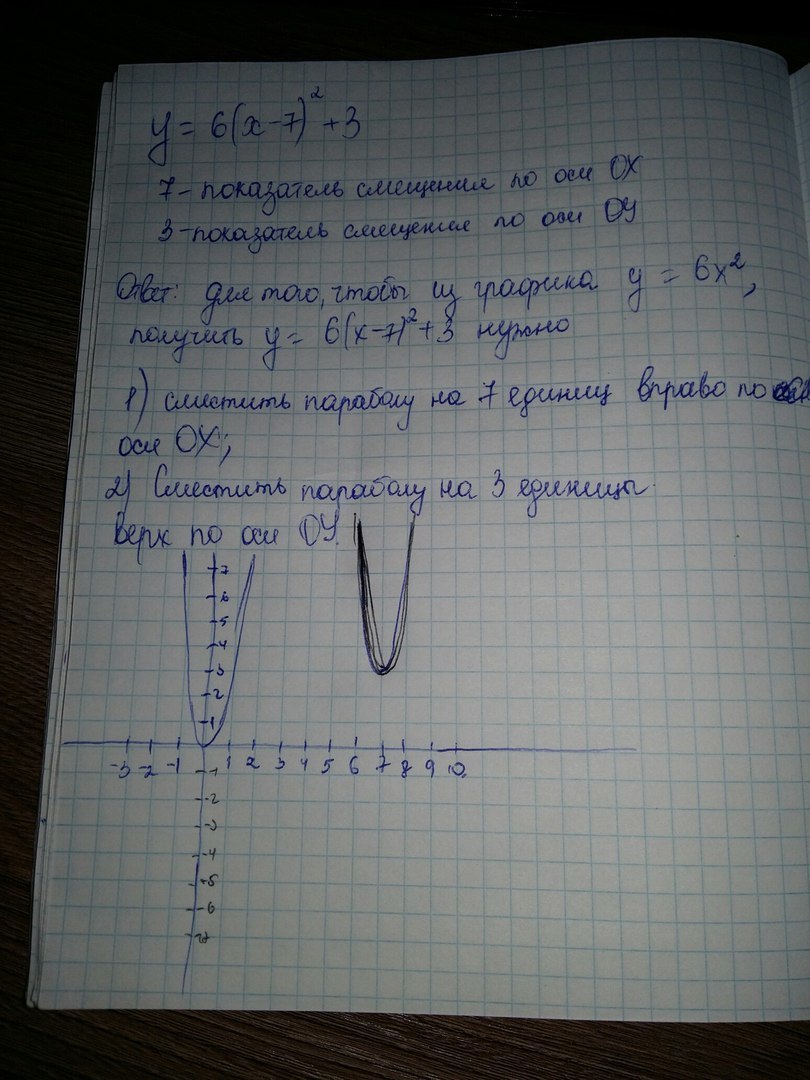 y = 6(x-7)² + 3
7 - показатель смещения по оси OX
3 - показатель смещения по оси OY
Ответ: для того, чтобы из графика y = 6x²,
получить y = 6(x-7)² + 3 нужно
1) сместить параболу на 7 единиц вправо по
оси OX;
2) Сместить параболу на 3 единицы
верх по оси OY.
7
6
5
4
3
2
1
-3 -2 -1 1 2 3 4 5 6 7 8 9 10
-1
-2
-3
-4
-5
-6
-7